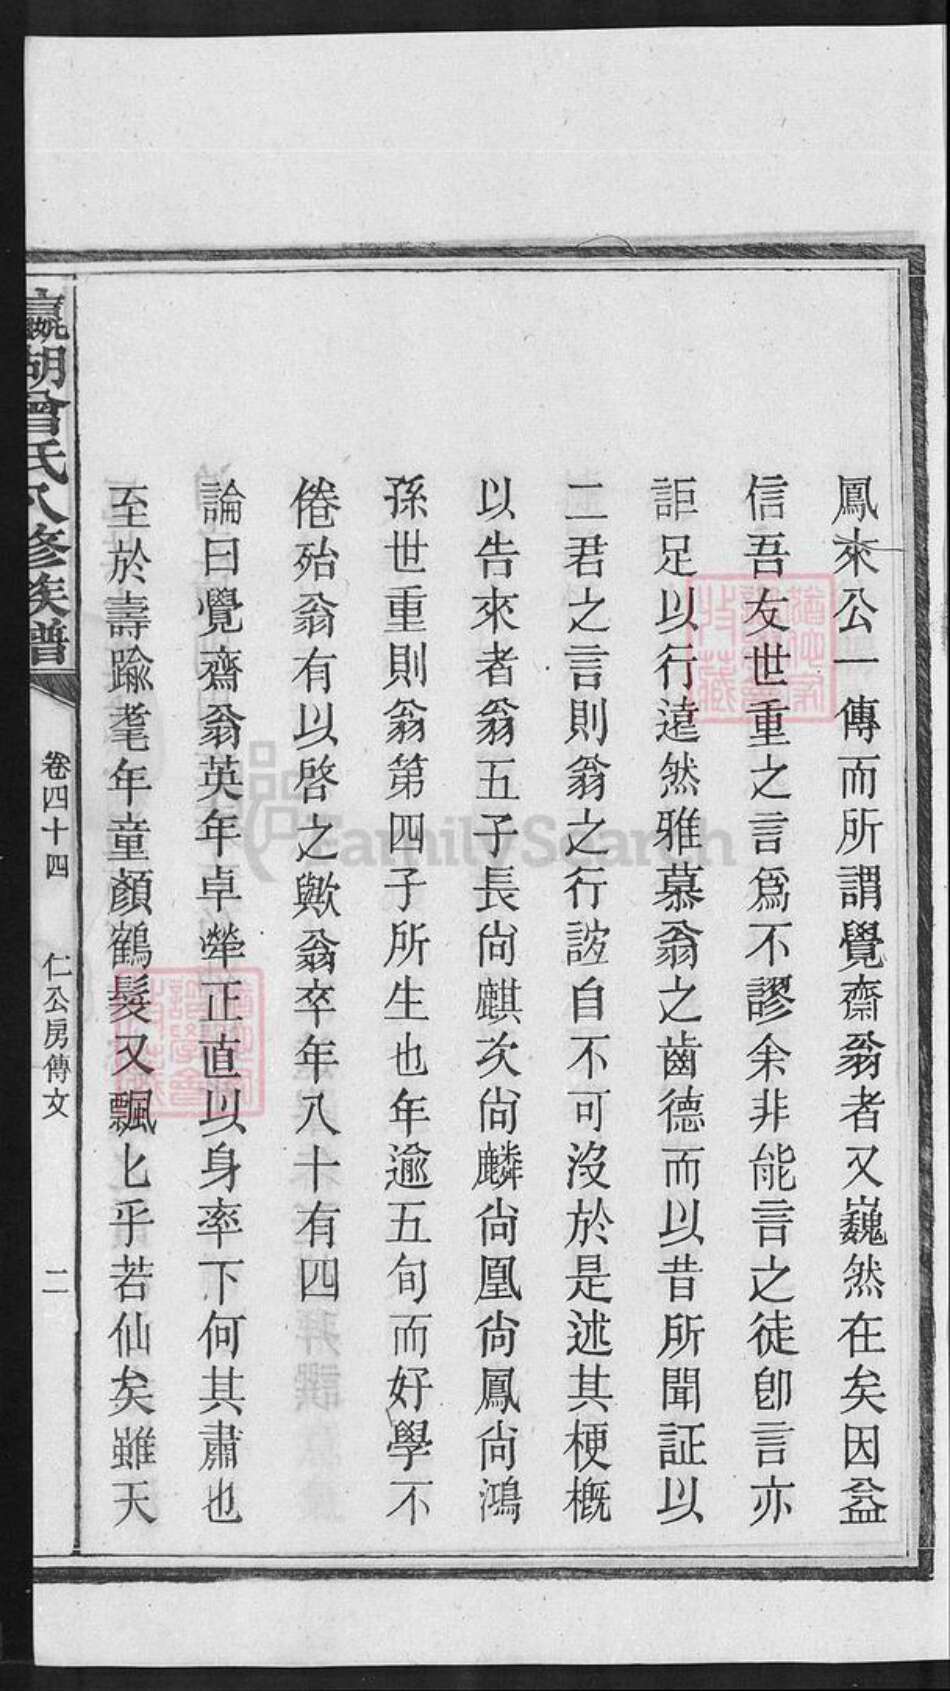 鳳來公一傳而所謂覺齋翁者又巍然在矣因益
信吾友世重之言爲不謬余非能言之徒卽言亦
詎足以行遠然雅慕翁之齒德而以昔所聞証以
二君之言則翁之行誼自不可沒於是述其梗概
以告來者翁五子長尙麒次尙麟尙凰尙鳳尙鴻
孫世重則翁第四子所生也年逾五旬而好學不
倦殆翁有以啓之歟翁卒年八十有四
論曰覺齋翁英年卓犖正直以身率下何其肅也
至於壽踰耄年童顏鶴髮又飄匕乎若仙矣雖天
嬴湖曾氏八修族譜
卷四十四
仁公房傳文
二
FamilySearch